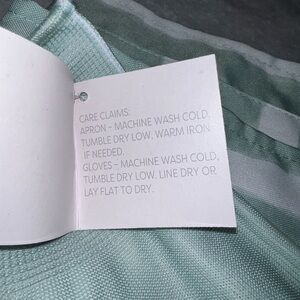 CARE CLAIMS:
APRON – MACHINE WASH COLD.
TUMBLE DRY LOW, WARM IRON
IF NEEDED.
GLOVES – MACHINE WASH COLD,
TUMBLE DRY LOW. LINE DRY OR
LAY FLAT TO DRY.